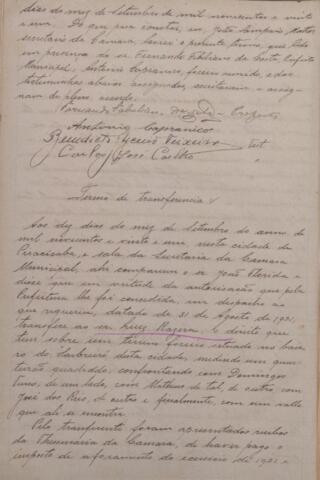 dias do mez de Setembro de mil novecentos e vinte
e um. Do que eu constar, eu, João Sampaio Mattos
secretario da Camara, lavrei o presente termo, que lido
em presença do sr Fernando Febeliano da Costa, Prefeito
Municipal, Antonio Capranico, foreiro novo, e das
testemunhas abaixo assignadas, acceitaram e assig-
nam de pleno accordo.
Fernando Febeliano da Costa - Prefeito
Antonio Capranico
Benedicto Teixeira Test
Carlos José Coelho "
Termo de transferencia
Aos dez dias do mez de Setembro do anno de
mil novecentos e vinte e um, nesta cidade de
Piracicaba, e sala da Secretaria da Camara
Municipal, ahi compareceu o sr João Florida e
disse que em virtude da autorisação que pela
Prefeitura lhe foi concedida, em despacho ao
que requereu, datado de 31 de Agosto de 1921,
transfere ao sr. Luiz Razera, o direito que
tem sobre um terreno foreiro situado no bair-
ro do desta cidade, medindo um quar-
teirão quadrado, confrontando com Domingos
de um lado, com Matheus de tal, de outro, com
José dos Reis, de outro e finalmente, com um vallo
que ali se encontra.
Pelo transferente foram apresentados recibos
da Thesouraria da Camara, de haver pago o
imposto de aforamento do exercicio de 1921 e